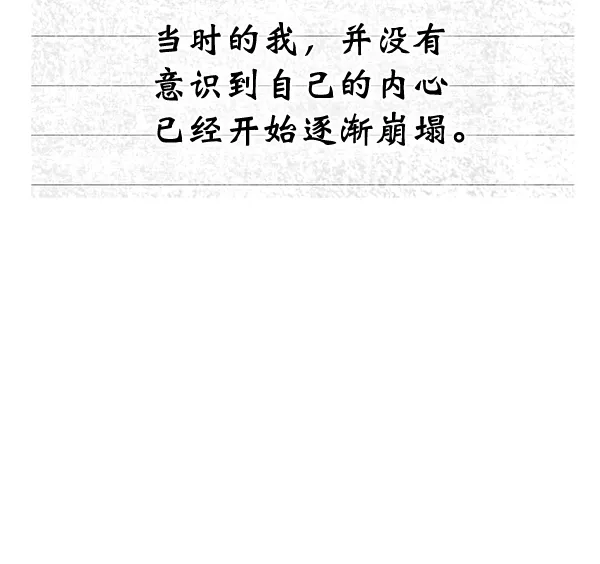 当时的我，并没有
意识到自己的内心
已经开始逐渐崩塌。